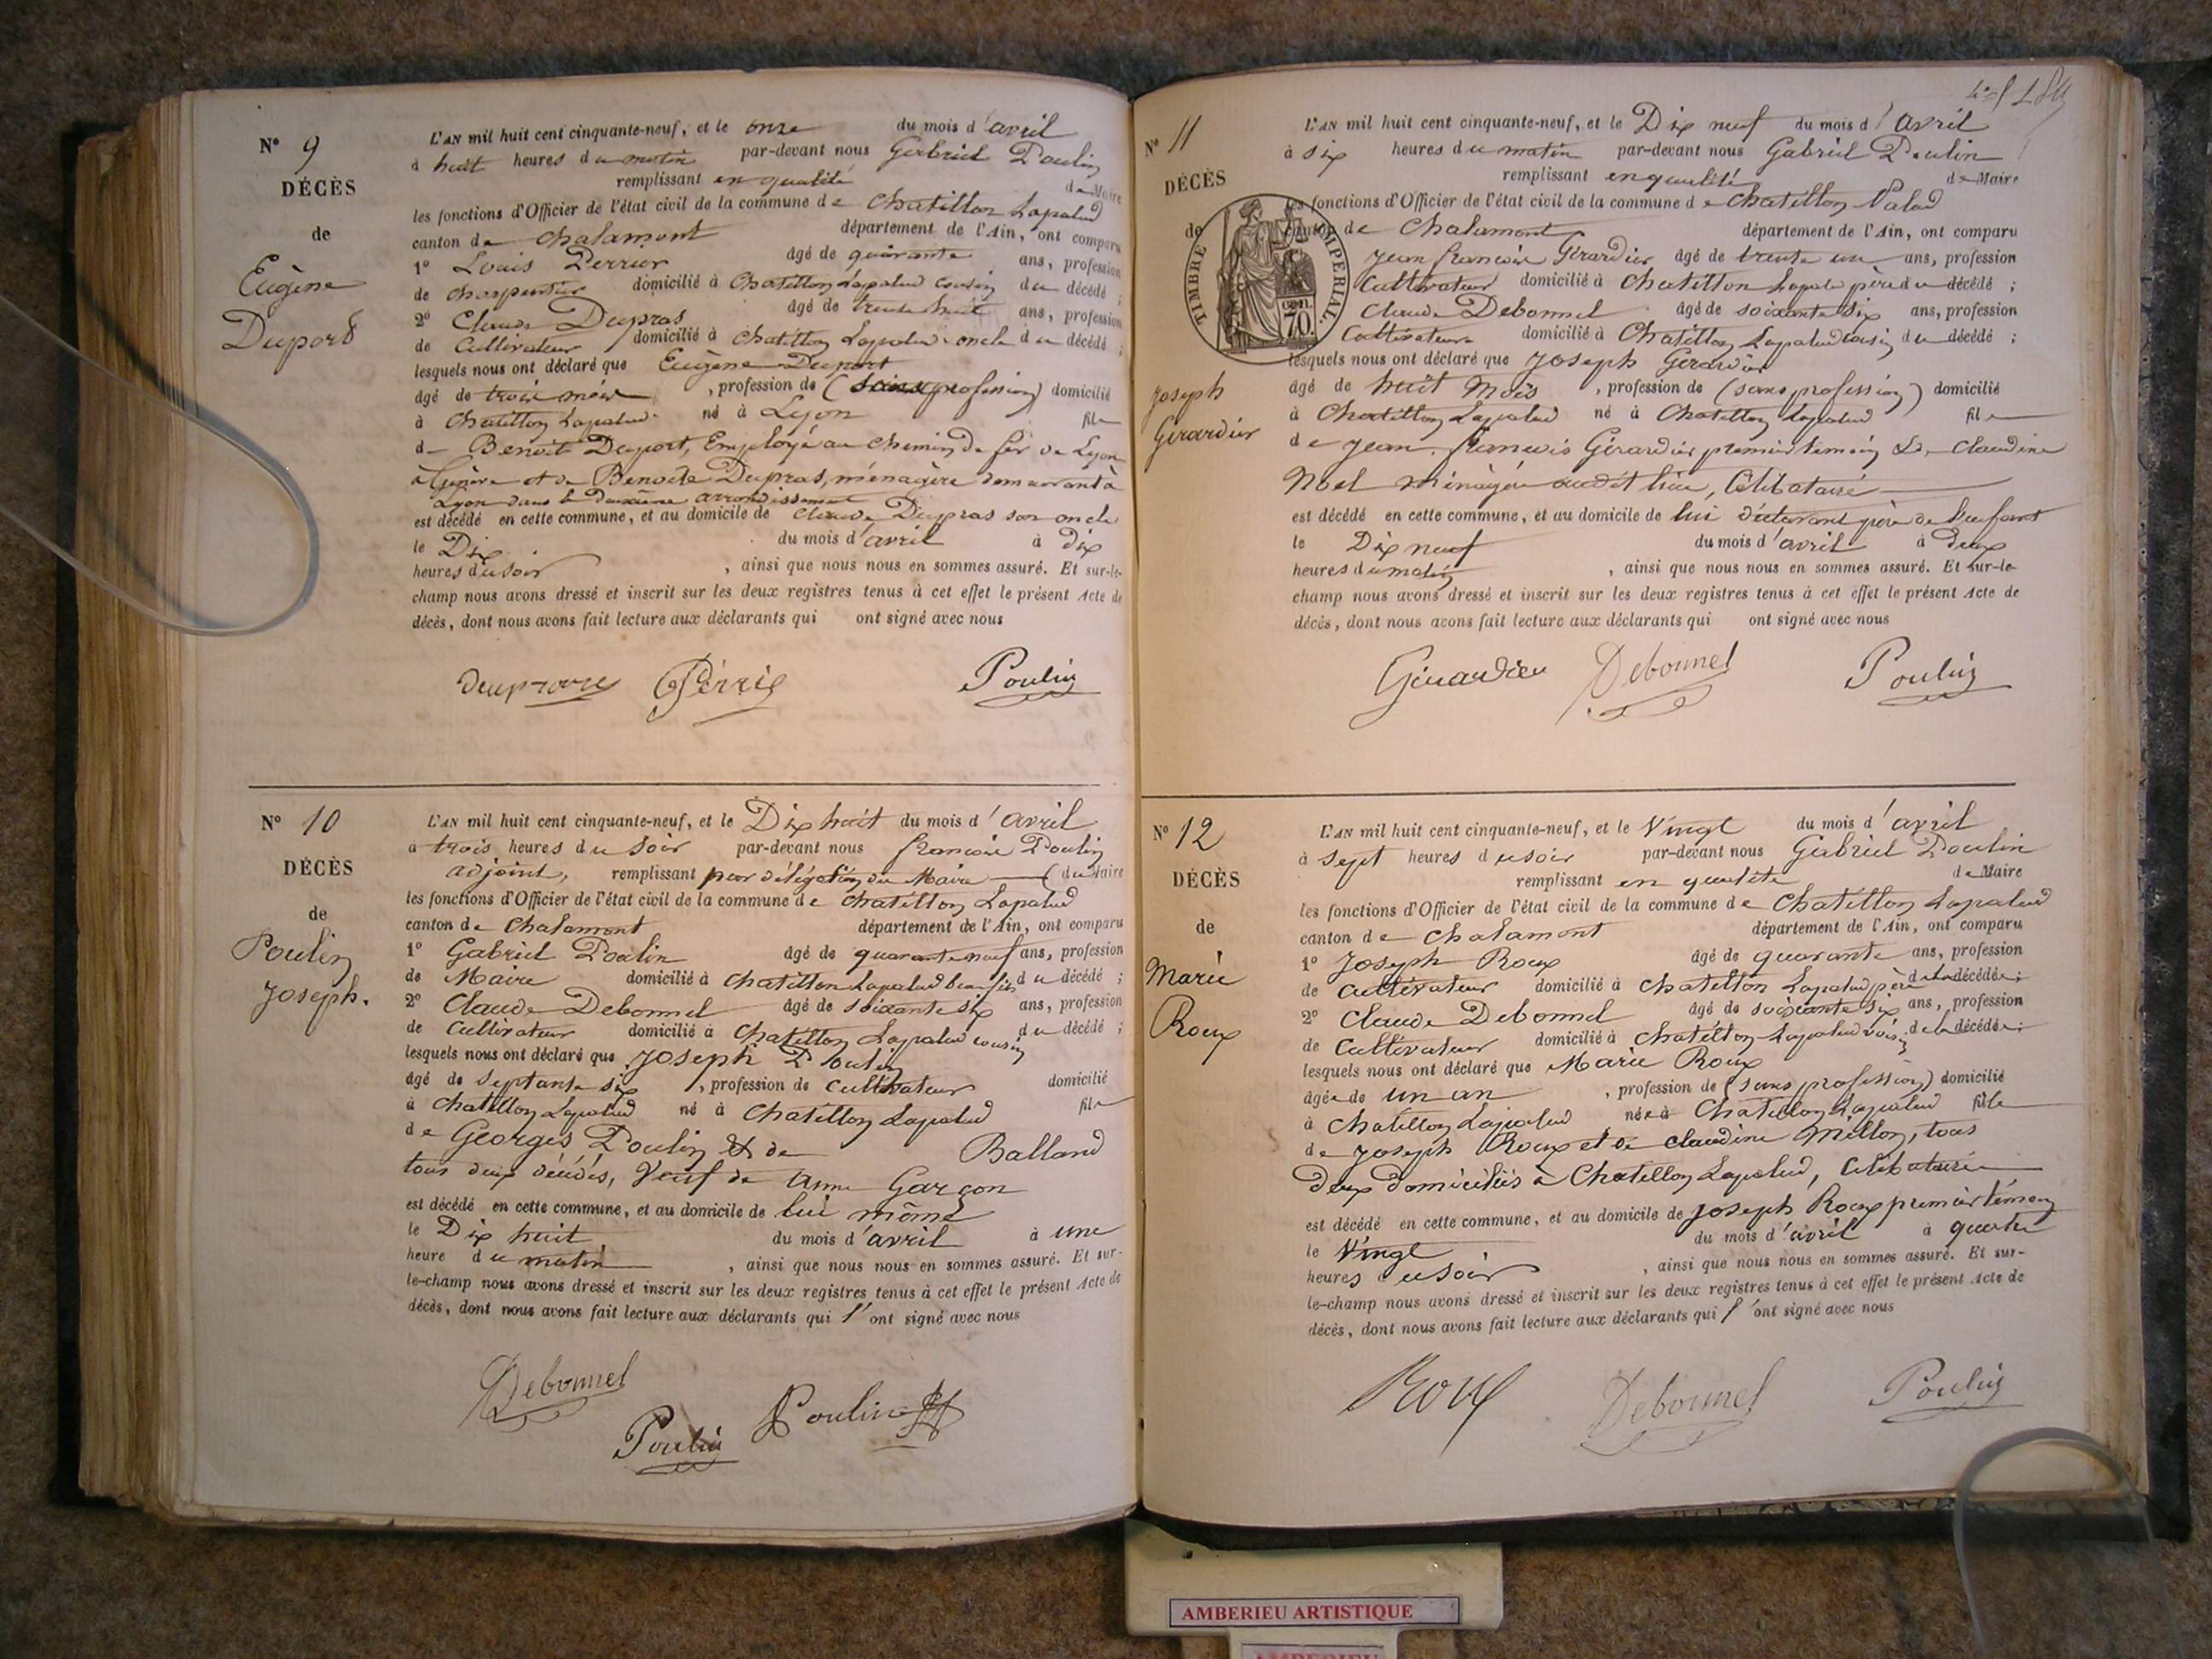 N° 9
DÉCÈS
de
Eugène
Duport
L'AN mil huit cent cinquante-neuf, et le onze du mois d'avril
à huit heures du matin par-devant nous Gabriel Poulin
remplissant en qualité de Maire
les fonctions d'Officier de l'état civil de la commune de Chatillon Lapalud
canton de Chalamont département de l'Ain, ont comparu
1° Louis Perrier âgé de quarante ans, profession
de charpentier domicilié à Chatillon Lapalud cousin du décédé ;
2° Claude Dupras âgé de trente huit ans, profession
de Cultivateur domicilié à Chatillon Lapalud oncle du décédé ;
lesquels nous ont déclaré que Eugène Duport
âgé de trois mois, profession de (sans profession) domicilié
à Chatillon Lapalud né à Lyon fils
de Benoit Duport, Employé au chemin de fer de Lyon
à Genève et de Benoite Dupras, ménagère demeurant à
Lyon dans le deuxième arrondissement
est décédé en cette commune, et au domicile de Claude Dupras son oncle
le Dix du mois d'avril à dix
heures du soir, ainsi que nous nous en sommes assuré. Et sur-le-
champ nous avons dressé et inscrit sur les deux registres tenus à cet effet le présent Acte de
décès, dont nous avons fait lecture aux déclarants qui ont signé avec nous
Poulin
N° 10
DÉCÈS
de
Poulin
Joseph.
L'AN mil huit cent cinquante-neuf, et le Dix huit du mois d'avril
à trois heures du soir par-devant nous françois Poulin
adjoint, remplissant par délégation du Maire (du Maire
les fonctions d'Officier de l'état civil de la commune de Chatillon Lapalud
canton de Chalamont département de l'Ain, ont comparu
1° Gabriel Poulin âgé de quarante neuf ans, profession
de Maire domicilié à Chatillon Lapalud beau fils du décédé ;
2° Claude Debonnel âgé de soixante six ans, profession
de Cultivateur domicilié à Chatillon Lapalud cousin du décédé ;
lesquels nous ont déclaré que Joseph Poulin
âgé de septante six, profession de cultivateur domicilié
à Chatillon Lapalud né à Chatillon Lapalud fils
de Georges Poulin & de Balland
tous deux décédés, Veuf de Anne Garçon
est décédé en cette commune, et au domicile de lui même
le Dix huit du mois d'avril à une
heure du matin, ainsi que nous nous en sommes assuré. Et sur-
le-champ nous avons dressé et inscrit sur les deux registres tenus à cet effet le présent Acte de
décès, dont nous avons fait lecture aux déclarants qui l'ont signé avec nous
Debonnel
Poulin Poulin
N° 11
DÉCÈS
de
Joseph
Girardier
TIMBRE IMPERIAL.
70.
L'AN mil huit cent cinquante-neuf, et le Dix neuf du mois d'Avril
à six heures du matin par-devant nous Gabriel Poulin
remplissant en qualité de Maire
les fonctions d'Officier de l'état civil de la commune de Chatillon Palud
canton de Chalamont département de l'Ain, ont comparu
Jean françois Girardier âgé de trente un ans, profession
Cultivateur domicilié à Chatillon Lapalu père du décédé ;
Claude Debonnel âgé de soixante six ans, profession
Cultivateur domicilié à Chatillon Lapalud cousin du décédé ;
lesquels nous ont déclaré que Joseph Girardier
âgé de huit Mois, profession de (sans profession) domicilié
à Chatillon Lapalud né à Chatillon Lapalud fils
de Jean françois Girardier premier temoin & de Claudine
Noel ménagère audit lieu, Célibataire
est décédé en cette commune, et au domicile de lui déclarant père de l'enfant
le Dix neuf du mois d'avril à deux
heures du matin, ainsi que nous nous en sommes assuré. Et sur-le-
champ nous avons dressé et inscrit sur les deux registres tenus à cet effet le présent Acte de
décès, dont nous avons fait lecture aux déclarants qui ont signé avec nous
Girardier Debonnel Poulin
N° 12
DÉCÈS
de
Marie
Roux
L'AN mil huit cent cinquante-neuf, et le Vingt du mois d'avril
à sept heures du soir par-devant nous Gabriel Poulin
remplissant en qualité de Maire
les fonctions d'Officier de l'état civil de la commune de Chatillon Lapalud
canton de Chalamont département de l'Ain, ont comparu
1° Joseph Roux âgé de quarante ans, profession
de Cultivateur domicilié à Chatillon Lapalud père de la décédée ;
2° Claude Debonnel âgé de soixante six ans, profession
de Cultivateur domicilié à Chatillon Lapalud voisin de la décédée ;
lesquels nous ont déclaré que Marie Roux
âgée de un an, profession de (sans profession) domicilié
à Chatillon Lapalud née à Chatillon Lapalud fille
de Joseph Roux et de Claudine Millon, tous
deux domiciliés à Chatillon Lapalud, Célibataire
est décédé en cette commune, et au domicile de Joseph Roux premier témoin
le Vingt du mois d'avril à quatre
heures du soir, ainsi que nous nous en sommes assuré. Et sur-
le-champ nous avons dressé et inscrit sur les deux registres tenus à cet effet le présent Acte de
décès, dont nous avons fait lecture aux déclarants qui l'ont signé avec nous
Roux Debonnel Poulin
AMBERIEU ARTISTIQUE
AMBERIEU